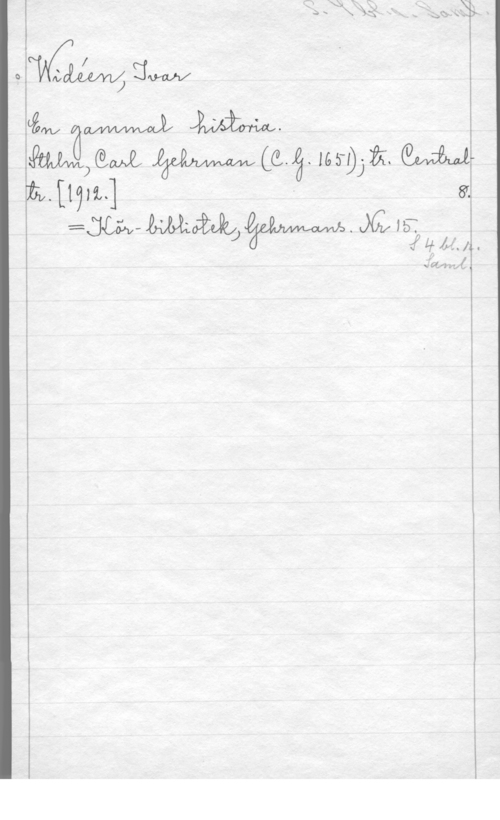 Widéen, Ivar
En gammal historia.
Sthlm, Carl Gehrman (C. G. 1651); tr. Central-
tr. [1912.] 8.
= Kör-bibliotek, Gehrmans. Nr 15.
S 4 bl. p.
Saml.